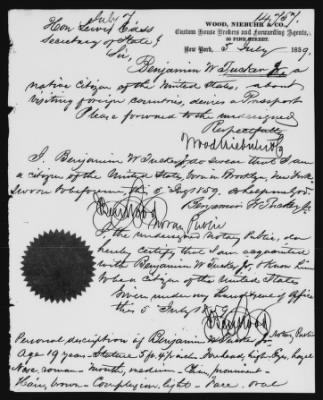 July 7
14757
WOOD, NIEBUHR & CO.,
Custom House Brokers and Forwarding Agents,
Hon Lewis Cass
Secretary of State
New York, 5 July 1859.
Sir,
Benjamin W. Tucker Jr, a
native citizen of the United States, about
visiting foreign countries, desires a Passport
Please forward to the undersigned
Respectfully
Wood Niebuhr & Co
I, Benjamin W Tucker Jr do swear that I am
a citizen of the United States, born in Brooklyn, New York
Sworn to before me this 5 July 1859. So help me God
Benjamin W. Tucker Jr
Notary Public
I the undersigned Notary Public, do
hereby certify that I am acquainted
with Benjamin W Tucker Jr, & know him
to be a citizen of the United States
Given under my hand & seal of Office
this 5 July
Notary Public
Personal description of Benjamin W Tucker Jr
Age 19 years - Stature 5 ft 4 1/2 inch - Forehead, high - Eyes, hazel
Nose, roman - Mouth, medium - Chin, prominent -
Hair, brown - Complexion, light - Face, oval